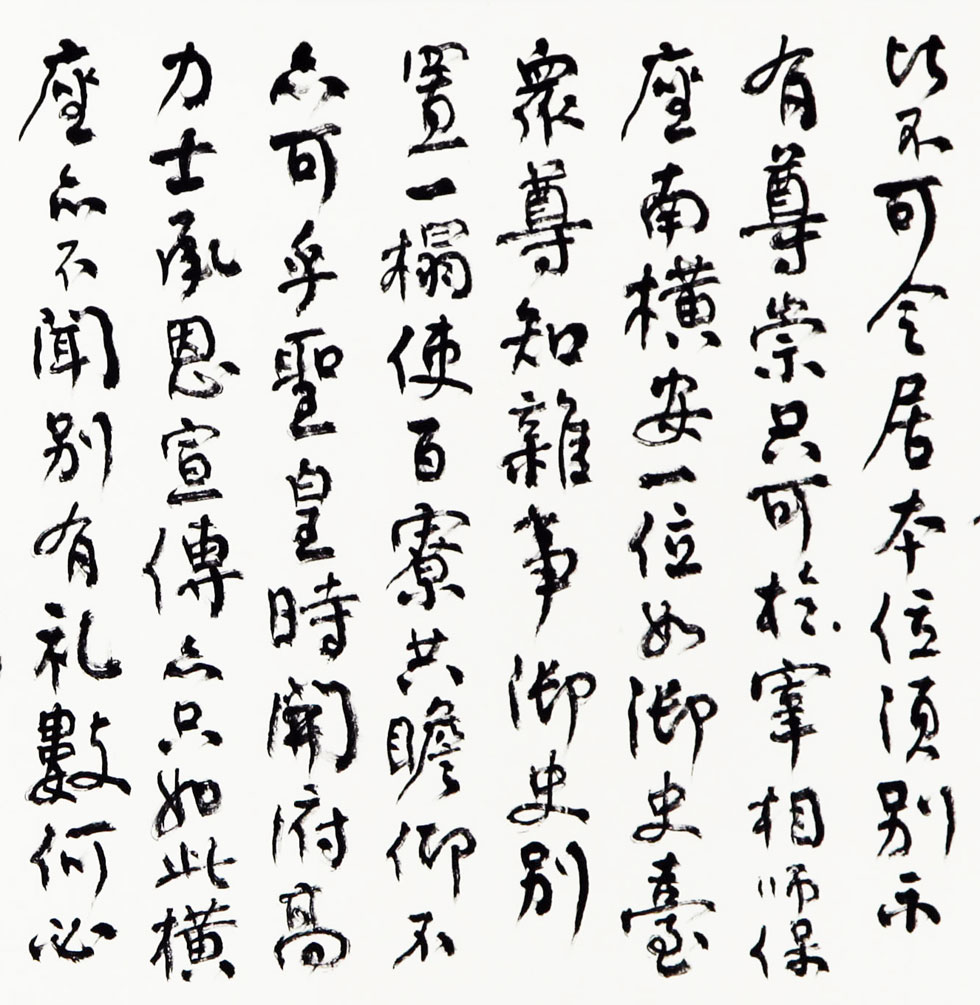 皆不可令居本位須別示
有尊崇只可於宰相師保
座南橫安一位如御史臺
眾尊知雜事御史別
置一榻使百寮共瞻仰不
亦可乎聖皇時開府高
力士承恩宣傳亦只如此橫
座亦不聞別有礼數何必